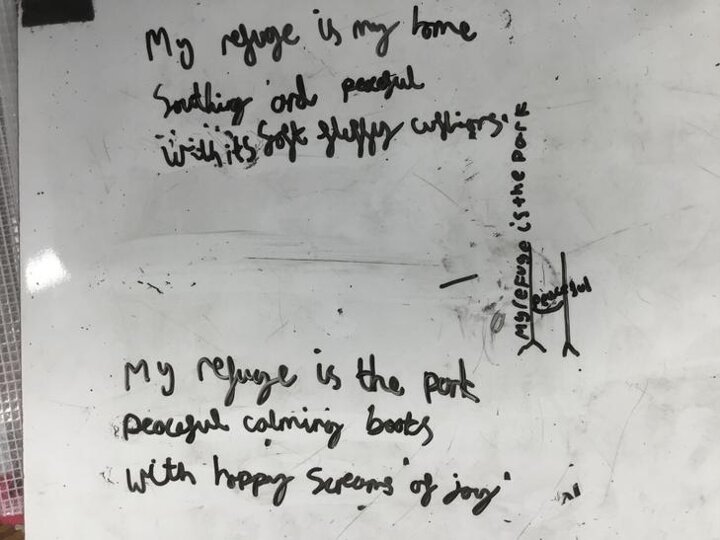 My refuge is my home
Soothing and peaceful
with its soft fluffy cushions.
My refuge is the park
peaceful
My refuge is the park
peaceful calming boots
with happy screams of joy.